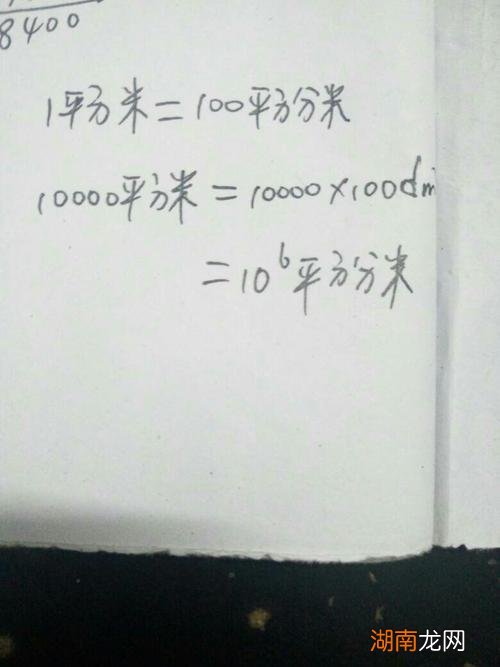 8400
1平方米=100平方分米
10000平方米=10000×100dm
=10⁶平方分米
湖南龙网